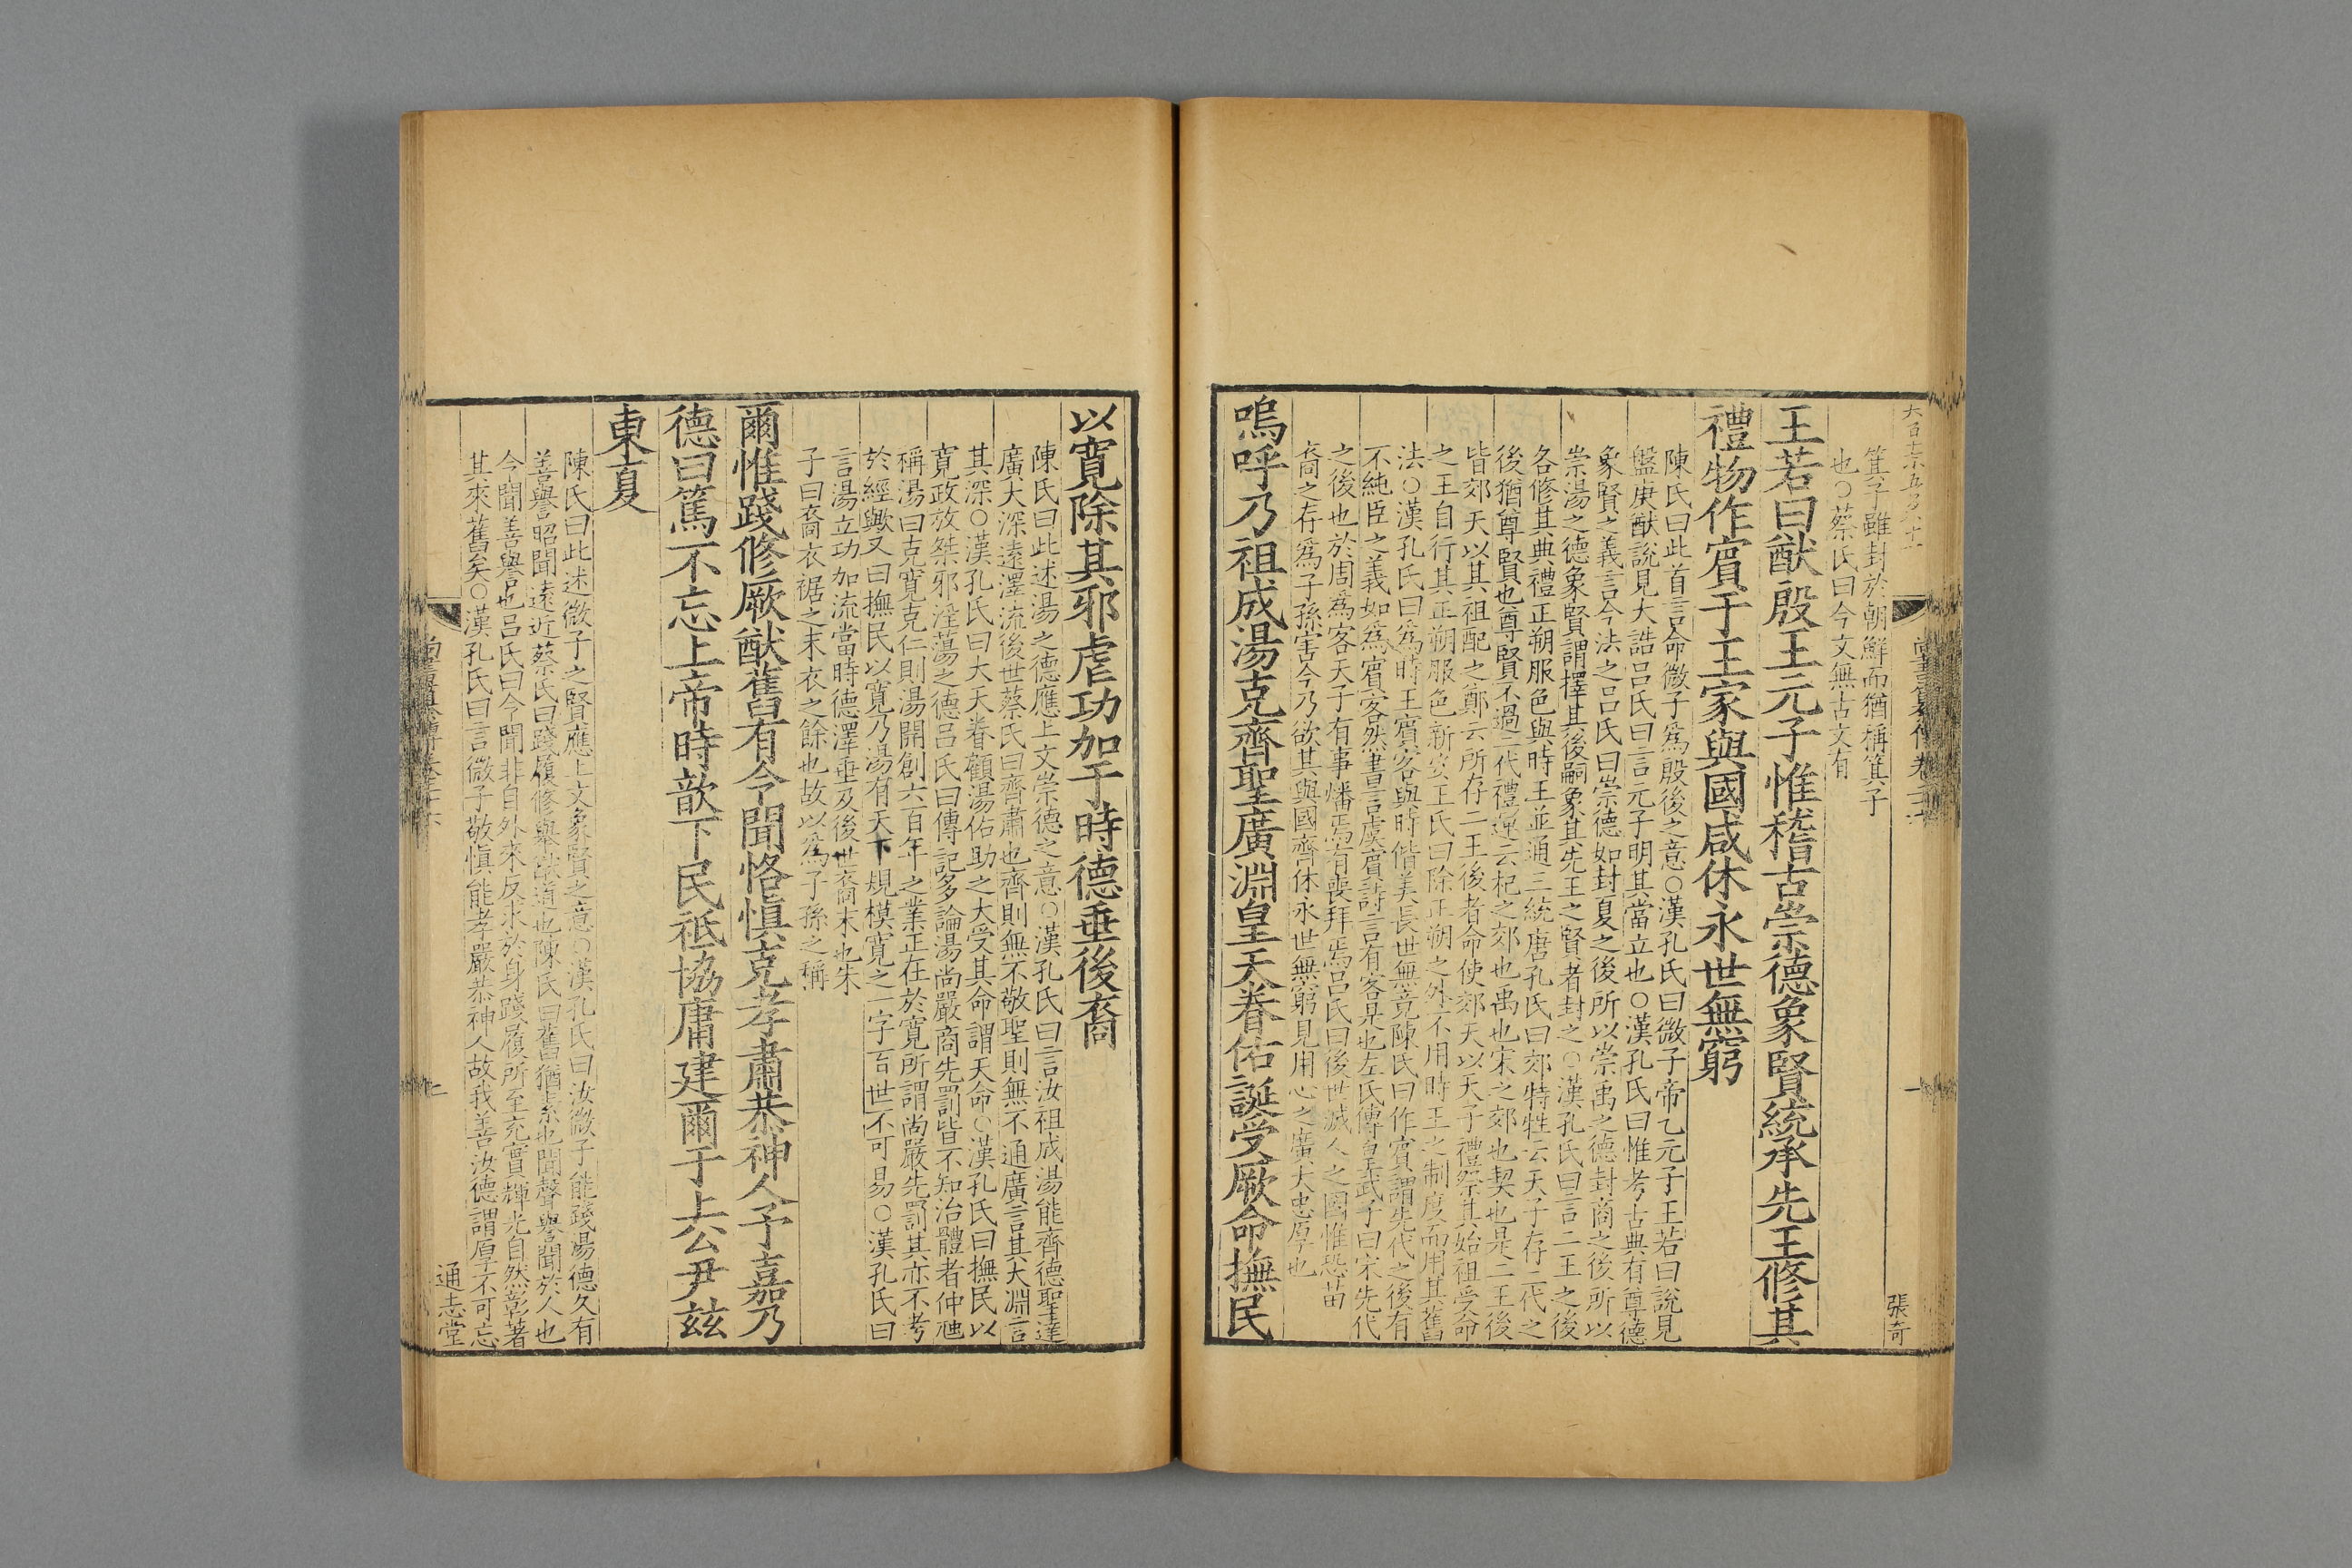 箕子雖封於朝鮮而猶稱箕子
也○蔡氏曰今文無古文有
王若曰猷殷王元子惟稽古崇德象賢統承先王修其
禮物作賓于王家與國咸休永世無窮
陳氏曰此首言命微子為殷後之意○漢孔氏曰微子帝乙元子王若曰說見
盤庚猷說見大誥呂氏曰言元子明其當立也○漢孔氏曰惟考古典有尊德
象賢之義言今法之呂氏曰崇德如封夏之後所以崇禹之德封商之後所以
崇湯之德象賢謂擇其後嗣象其先王之賢者封之○漢孔氏曰言二王之後
各修其典禮正朔服色與時王並通三統唐孔氏曰郊特牲云天子存二代之
後猶尊賢也尊賢不過二代禮運云杞之郊也禹也宋之郊也契也是二王後
皆郊天以其祖配之鄭云所存二王後者命使郊天以天子禮祭其始祖受命
之王自行其正朔服色新安王氏曰除正朔之外不用時王之制度而用其舊
法○漢孔氏曰為時王賓客與時偕美長世無竟陳氏曰作賓謂先代之後有
不純臣之義如為賓客然書言虞賓詩言有客是也左氏傳皇武子曰宋先代
之後也於周為客天子有事膰焉有喪拜焉呂氏曰後世滅人之國惟恐苗
裔之存為子孫害今乃欲其與國齊休永世無窮見用心之廣大忠厚也
嗚呼乃祖成湯克齊聖廣淵皇天眷佑誕受厥命撫民
張奇
以寬除其邪虐功加于時德垂後裔
陳氏曰此述湯之德應上文崇德之意○漢孔氏曰言汝祖成湯能齊德聖達
廣大深遠澤流後世蔡氏曰齊肅也齊則無不敬聖則無不通廣言其大淵言
其深○漢孔氏曰大天眷顧湯佑助之大受其命謂天命○漢孔氏曰撫民以
寬政放桀邪淫蕩之德呂氏曰傳記多論湯尚嚴商先罰皆不知治體者仲虺
稱湯曰克寬克仁則湯開創六百年之業正在於寬所謂尚嚴先罰其亦不考
於經歟又曰撫民以寬乃湯有天下規模寬之一字百世不可易○漢孔氏曰
言湯立功加流當時德澤垂及後世裔末也朱
子曰裔衣裾之末衣之餘也故以為子孫之稱
爾惟踐修厥猷舊有令聞恪慎克孝肅恭神人予嘉乃
德曰篤不忘上帝時歆下民祗協庸建爾于上公尹茲
東夏
陳氏曰此述微子之賢應上文象賢之意○漢孔氏曰汝微子能踐湯德久有
善譽昭聞遠近蔡氏曰踐履修舉猷道也陳氏曰舊猶素也聞聲譽聞於人也
令聞善譽也呂氏曰令聞非自外來反求於身踐履所至充實輝光自然彰著
其來舊矣○漢孔氏曰言微子敬慎能孝嚴恭神人故我善汝德謂厚不可忘
通志堂